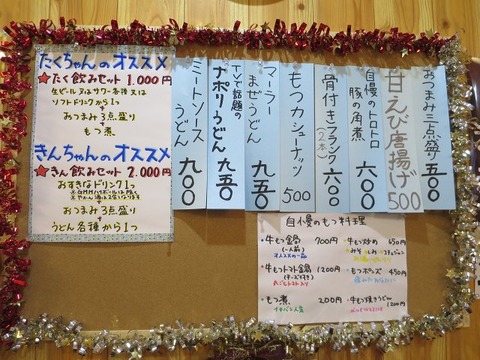 たくちゃんのオススメ
★たく飲みセット 1.000円
生ビール又はサワー各種又は
ソフトドリンクから1つ
+
おつまみ3点盛り
+
もつ煮
きんちゃんのオススメ
★きん飲みセット 2.000円
お好きなドリンク1つ
+
おつまみ3点盛り
+
うどん各種から1つ
おつまみ三点等 500
甘えび唐揚げ 500
自慢のトロトロ
豚の角煮 600
骨付きフランク(2本) 600
もつカシューナッツ 500
マーラー
まぜうどん 950
TVで話題の
ナポリうどん 950
ミートソース
うどん 900
自慢のもつ料理
・牛もつ鍋 700円
(一人前)
・牛もつトマト鍋 1200円
・もつ煮 200円
・牛もつ炒め 650円
・もつポンズ 450円
・牛もつ焼きうどん
1200円